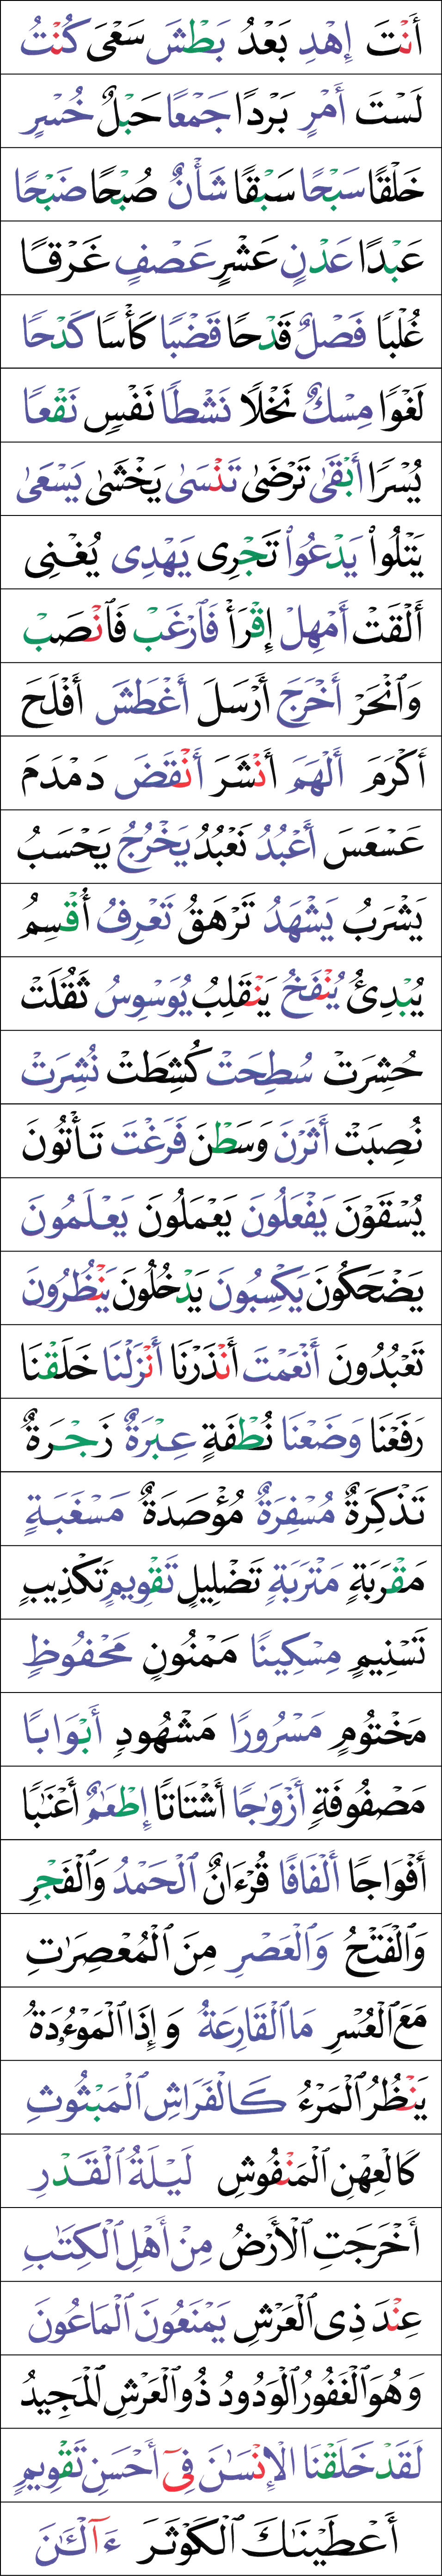 أَنْتَ إِهْدِ بَعْدُ بَطْشَ سَعْىَ كُنْتُ
لَسْتَ أَمْرٍ بَرْدًا جَمْعًا حَبْلٌ خُسْرٍ
خَلْقًا سَبْحًا سَبْقًا شَأْنٌ صُبْحًا ضَبْحًا
عَبْدًا عَدْنٍ عَشْرٍ عَصْفٍ غَرْقًا
غُلْبًا فَصْلٌ قَدْحًا قَضْبًا كَأْسًا كَدْحًا
لَغْوًا مِسْكٌ نَخْلًا نَشْطًا نَفْسٍ نَقْعًا
يُسْرًا أَبْقَىٰ تَرْضَىٰ تَنْسَىٰ يَخْشَىٰ يَسْعَىٰ
يَتْلُوا۟ يَدْعُوا۟ تَجْرِى يَهْدِى يُغْنِى
أَلْقَتْ أَمْهِلْ إِقْرَأْ فَٱرْغَبْ فَٱنْصَبْ
وَٱنْحَرْ أَخْرَجَ أَرْسَلَ أَغْطَشَ أَفْلَحَ
أَكْرَمَ أَلْهَمَ أَنْشَرَ أَنْقَضَ دَمْدَمَ
عَسْعَسَ أَعْبُدُ نَعْبُدُ يَخْرُجُ يَحْسَبُ
يَشْرَبُ يَشْهَدُ تَرْهَقُ تَعْرِفُ أُقْسِمُ
يُبْدِئُ يُنْفَخُ يَنْقَلِبُ يُوَسْوِسُ ثَقُلَتْ
حُشِرَتْ سُطِحَتْ كُشِطَتْ نُشِرَتْ
نُصِبَتْ أَثَرْنَ وَسَطْنَ فَرَغْتَ تَأْتُونَ
يُسْقَوْنَ يَفْعَلُونَ يَعْمَلُونَ يَعْلَمُونَ
يَضْحَكُونَ يَكْسِبُونَ يَدْخُلُونَ يَنْظُرُونَ
تَعْبُدُونَ أَنْعَمْتَ أَنْذَرْنَا أَنْزَلْنَا خَلَقْنَا
رَفَعْنَا وَضَعْنَا نُطْفَةٍ عِبْرَةٌ زَجْرَةٌ
تَذْكِرَةٌ مُسْفِرَةٌ مُؤْصَدَةٌ مَسْغَبَةٍ
مَقْرَبَةٍ مَتْرَبَةٍ تَضْلِيلٍ تَقْوِيمٍ تَكْذِيبٍ
تَسْنِيمٍ مِسْكِينًا مَمْنُونٍ مَحْفُوظٍ
مَخْتُومٍ مَسْرُورًا مَشْهُودٍ أَبْوَابًا
مَصْفُوفَةٍ أَزْوَٰجًا أَشْتَاتًا إِطْعَٰمٌ أَعْنَٰبًا
أَفْوَاجًا أَلْفَافًا قُرْءَانٌ ٱلْحَمْدُ وَٱلْفَجْرِ
وَٱلْفَتْحُ وَٱلْعَصْرِ مِنَ ٱلْمُعْصِرَٰتِ
مَعَ ٱلْعُسْرِ مَا ٱلْقَارِعَةُ وَإِذَا ٱلْمَوْءُۥدَةُ
يَنْظُرُ ٱلْمَرْءُ كَٱلْفَرَاشِ ٱلْمَبْثُوثِ
كَالْعِهْنِ ٱلْمَنْفُوشِ لَيْلَةُ ٱلْقَدْرِ
أَخْرَجَتِ ٱلْأَرْضُ مِنْ أَهْلِ ٱلْكِتَٰبِ
عِنْدَ ذِى ٱلْعَرْشِ يَمْنَعُونَ ٱلْمَاعُونَ
وَهُوَ ٱلْغَفُورُ ٱلْوَدُودُ ذُو ٱلْعَرْشِ ٱلْمَجِيدُ
لَقَدْ خَلَقْنَا ٱلْإِنْسَٰنَ فِىٓ أَحْسَنِ تَقْوِيمٍ
أَعْطَيْنَٰكَ ٱلْكَوْثَرَ ءَآلْـَٰٔنَ